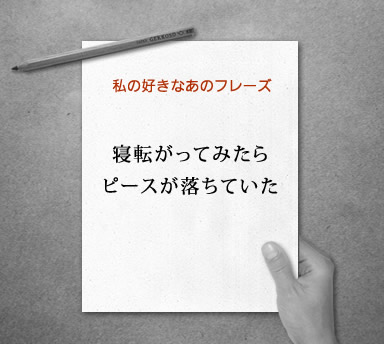 私の好きなあのフレーズ
寝転がってみたら
ピースが落ちていた